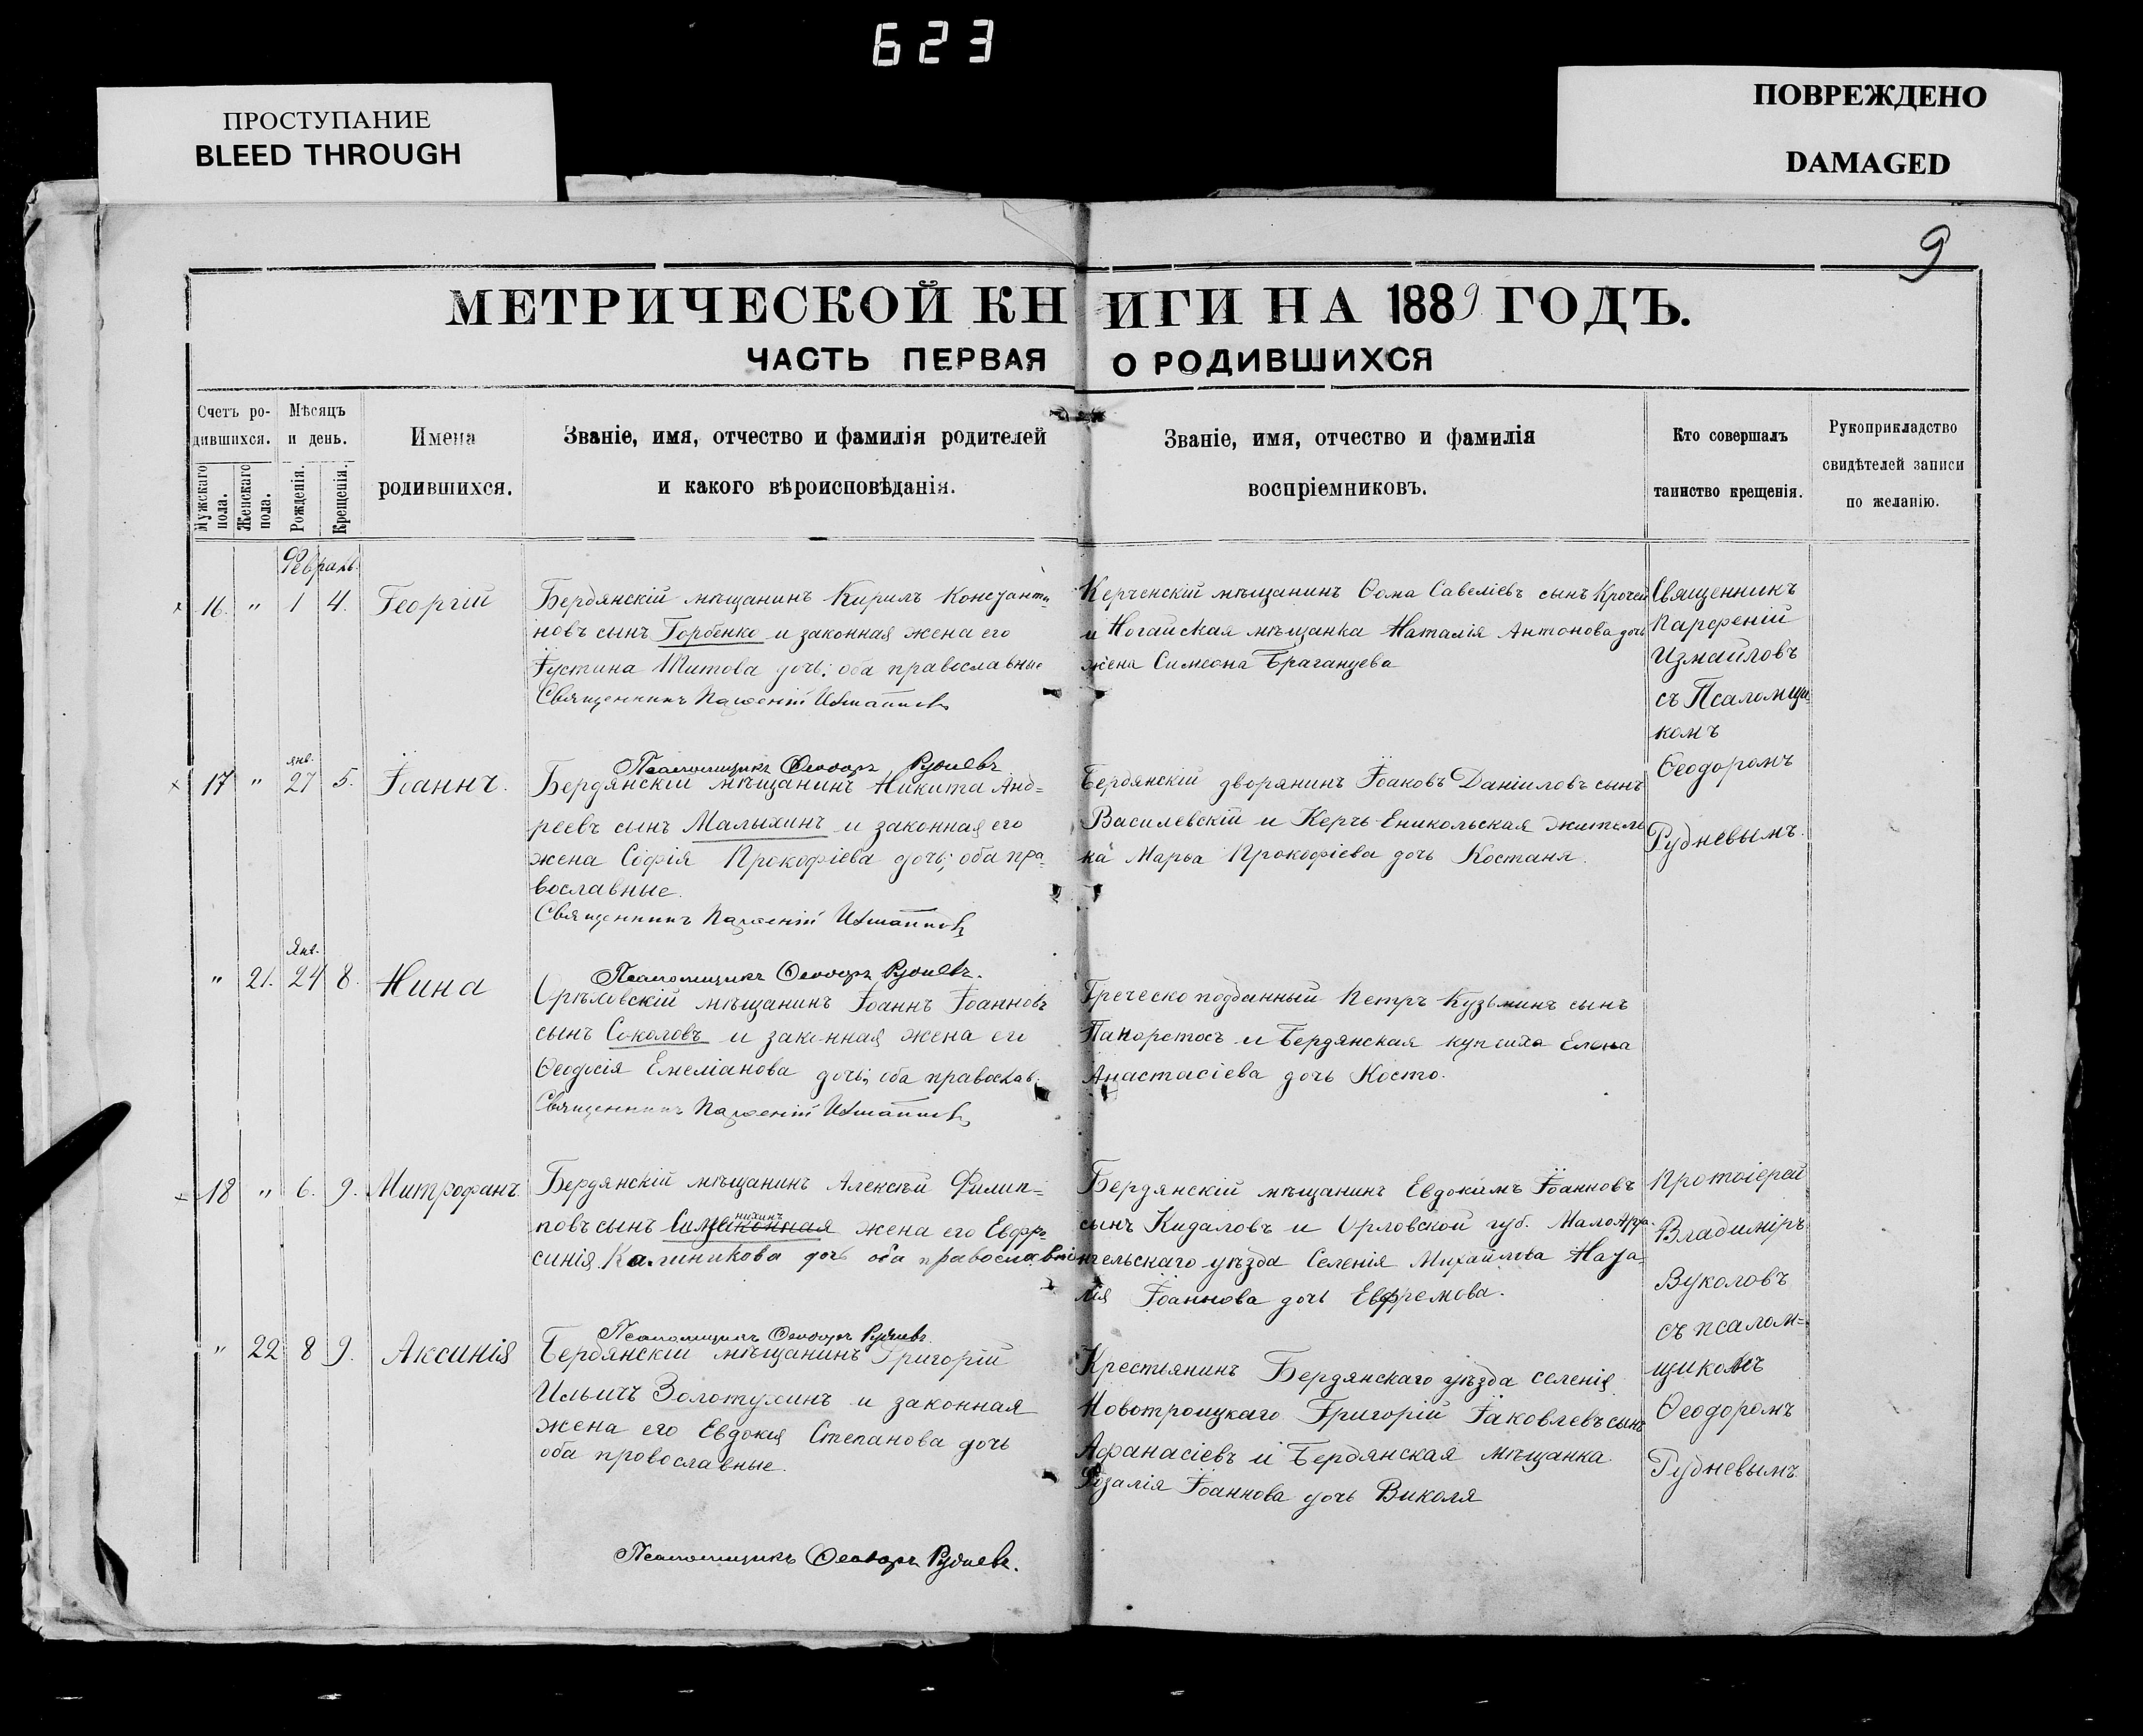 623
ПРОСТУПАНИЕ
BLEED THROUGH
ПОВРЕЖДЕНО
DAMAGED
9
МЕТРИЧЕСКОЙ КНИГИ НА 1889 ГОДЪ.
ЧАСТЬ ПЕРВАЯ О РОДИВШИХСЯ
Счетъ ро-
дившихся.
Мужскаго пола.
Женскаго пола.
Мѣсяцъ
и день.
Рожденія.
Крещенія.
Имена
родившихся.
Званіе, имя, отчество и фамилія родителей
и какого вѣроисповѣданія.
Званіе, имя, отчество и фамилія
воспріемниковъ.
Кто совершалъ
таинство крещенія.
Рукоприкладство
свидѣтелей записи
по желанію.
Февраль.
16. " 1 4. Георгій
Бердянскій мѣщанинъ Кирилъ Константи-
новъ сынъ Горбенко и законная жена его
Іустина Титова дочь; оба православные
Священникъ Парѳеній Измаиловъ
Псаломщикъ Ѳеодоръ Рудневъ
Керченскій мѣщанинъ Ѳома Савеліевъ сынъ
и Ногайская мѣщанка Наталія Антонова дочь
жена Симеона Браганцева
Священникъ
Парфеній
Измаиловъ
съ Псаломщи-
комъ
Ѳеодоромъ
Рудневымъ.
17 " янв. 27 5. Іоаннъ.
Бердянскій мѣщанинъ Никита Анд-
реевъ сынъ Малыхинъ и законная его
жена Софія Прокофіева дочь; оба пра-
вославные.
Священникъ Парѳеній Измаиловъ
Псаломщикъ Ѳеодоръ Рудневъ.
Бердянскій дворянинъ Іоаковъ Даніиловъ сынъ
Василевскій и Керчь-Еникольская житель
ка Марѳа Прокофіева дочь Костаня.
" 21. Янв. 24 8. Нина
Орѣховскій мѣщанинъ Іоаннъ Іоанновъ
сынъ Соколовъ и законная жена его
Ѳеодосія Емеліанова дочь; оба православ.
Священникъ Парѳеній Измаиловъ
Греческо подданный Петръ Кузьминъ сынъ
Папоретосъ и Бердянская купчиха Елена
Анастасіева дочь Косто.
18 " 6. 9. Митрофанъ.
Бердянскій мѣщанинъ Алексѣй Филип-
повъ сынъ нихинъ жена его Евфро-
синія Калиникова дочь оба православніе
Псаломщикъ Ѳеодоръ Рудневъ.
Бердянскій мѣщанинъ Евдокимъ Іоанновъ
сынъ Кидаловъ и Орловской губ. МалоАрха-
нгельскаго уѣзда Селенія Михайлова Ната-
лія Іоаннова дочь Евфремова.
Протоіерей
Владиміръ
Вуколовъ
съ псалом-
щикомъ
Ѳеодоромъ
Рудневымъ.
" 22 8 9. Аксинія
Бердянскій мѣщанинъ Григорій
Ильичъ Золотухинъ и законная
жена его Евдокія Степанова дочь
оба провославные.
Псаломщикъ Ѳеодоръ Рудневъ.
Крестьянинъ Бердянскаго уѣзда селенія
Новотроицкаго Григорій Іаковлевъ сынъ
Афанасіевъ и Бердянская мѣщанка
Розалія Іоаннова дочь Виколя